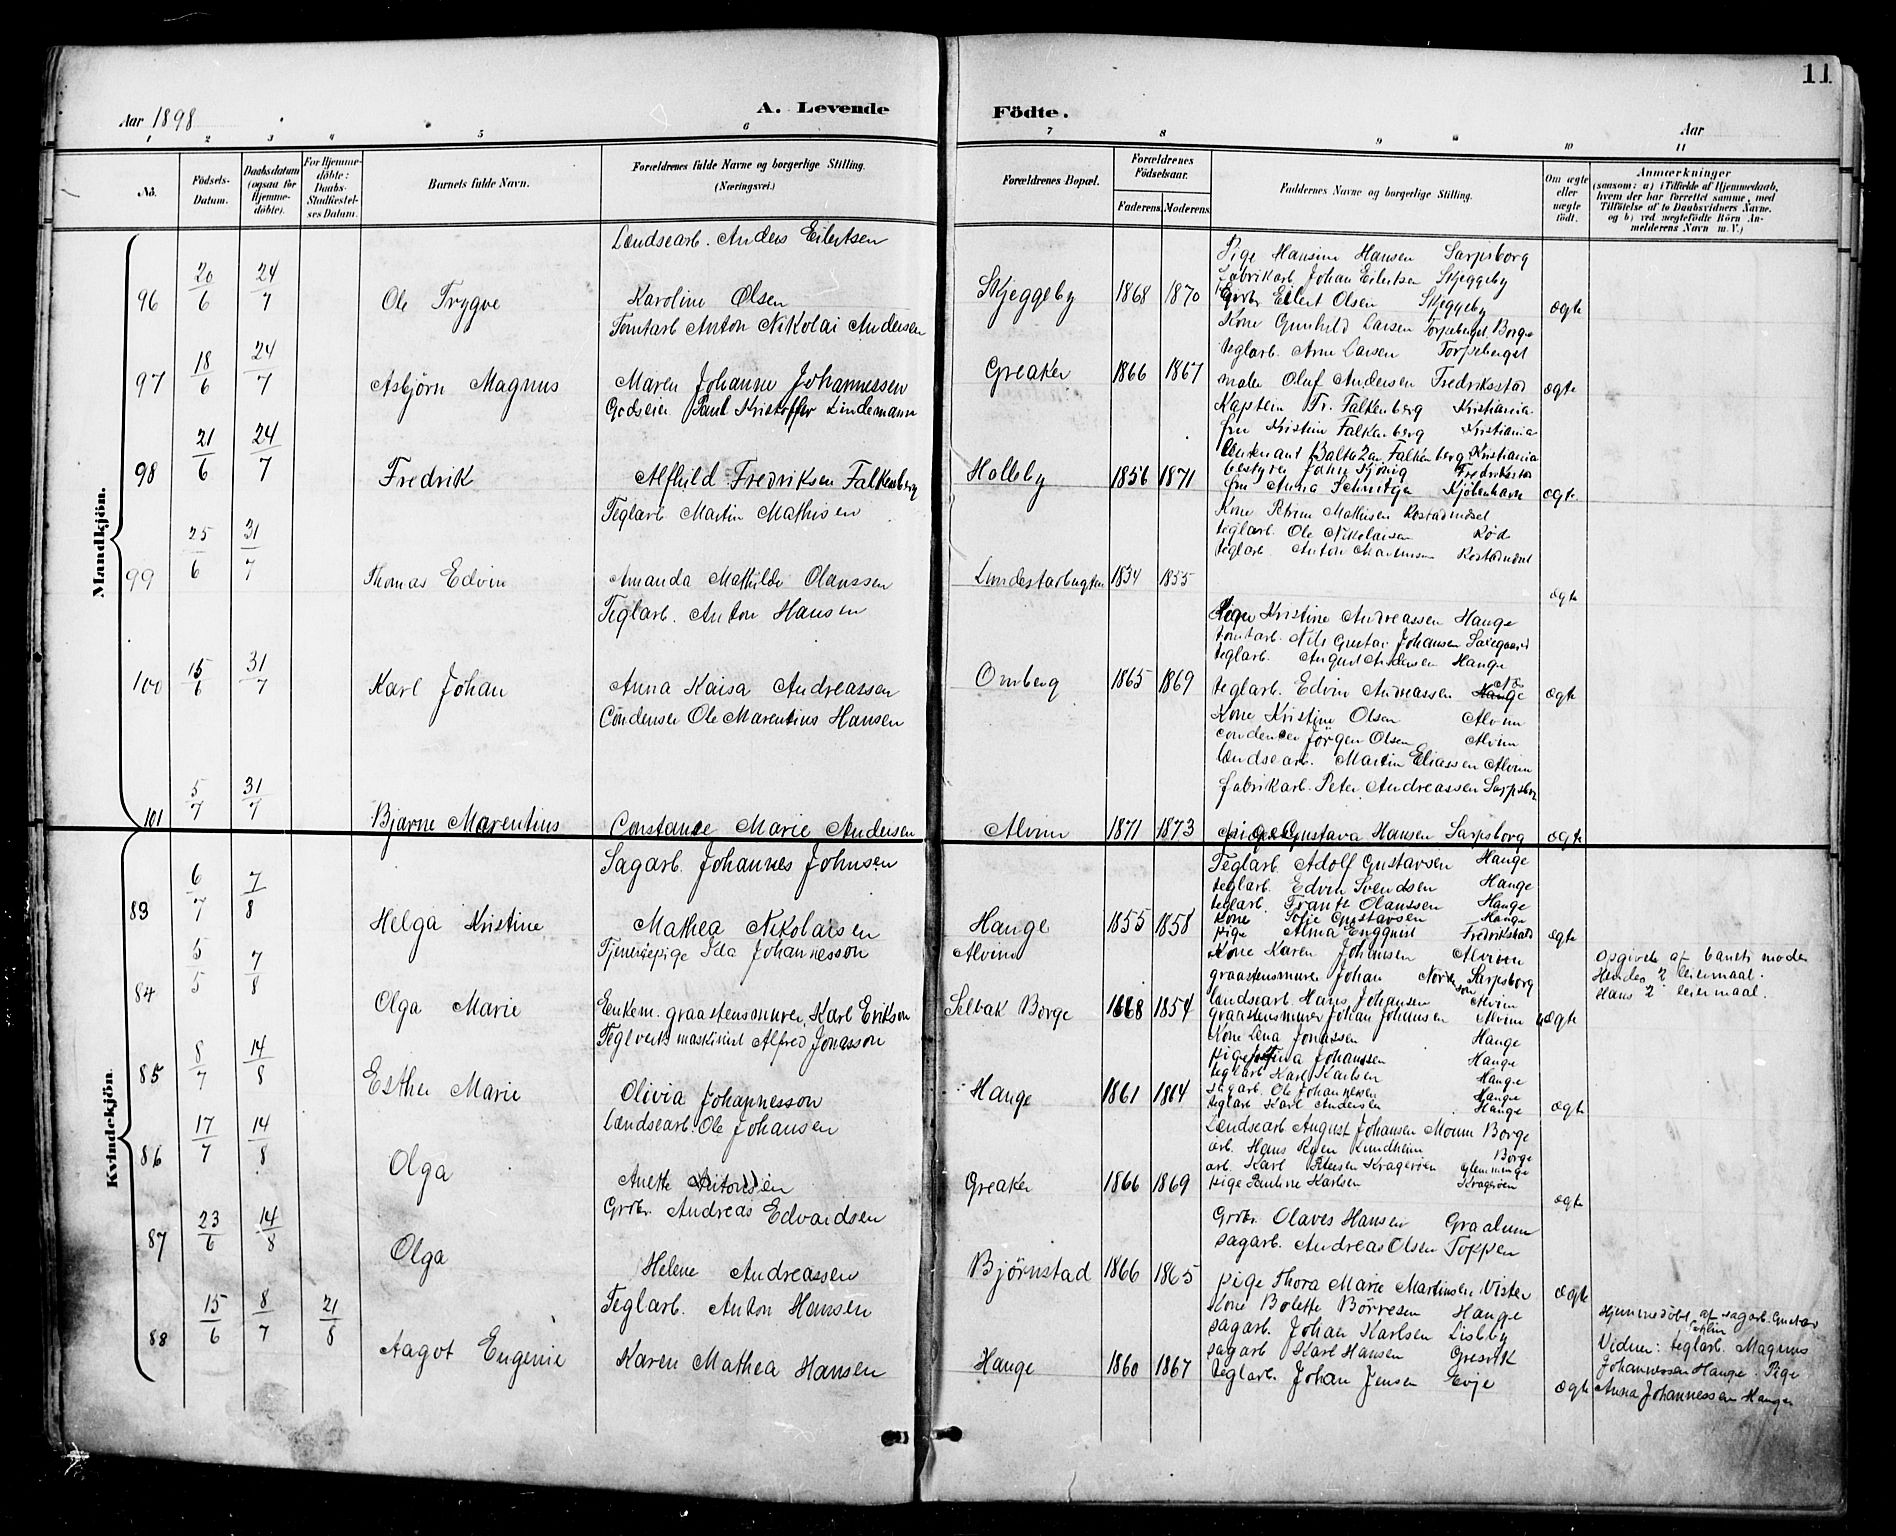 11
Aar 1898
A. Levende Födte.
Aar
1 2 3 4 5 6 7 8 9 10 11
No.
Födsels-Datum.
Daabsdatum (ogsaa for Hjemmedöbte).
For Hjemmedöbte: Daabs-Stadfæstelses Datum.
Barnets fulde Navn.
Forældrenes fulde Navne og borgerlige Stilling. (Næringsvei.)
Forældrenes Bopæl.
Forældrenes Födselsaar.
Faderens. Moderens.
Faddernes Navne og borgerlige Stilling.
Om ægte eller uægte födt.
Anmærkninger
(saasom: a) i Tilfælde af Hjemmedaab, hvem der har forrettet samme, med Tilföielse af to Daabsvidners Navne, og b) ved uægtefödte Börn Anmelderens Navn m. V.)
Mandkjön.
Lændsearb. Anders Eilertsen
96 20/6 24/7 Ole Trygve Karoline Olsen Skjeggeby 1868 1870 ægte
Pige Hansine Hansen Sarpsborg
Fabrikarb. Johan Eilertsen Skjeggeby
Grbr. Eilert Olsen Skjeggeby
Kone Gunhild Larsen Torpeberget Borge
teglarb. Arne Larsen Torpeberget
Tomtarb Anton Nikolai Andersen
97 18/6 24/7 Asbjörn Magnus Maren Johanne Johannessen Greaker 1866 1867 ægte
maler Oluf Andersen Fredriksstad
Godseier Paul Kristoffer Lindemann
98 21/6 24/7 Fredrik Alfhild Fredriksen Falkenberg Holleby 1856 1871 ægte
Kaptein Fr. Falkenberg Kristiania
fru Kristine Falkenberg Kristiania
Lieutenant Baltazar Falkenberg Kristiania
bestyrer John Kjönig Fredrikstad
fru Anna Schnitger Kjöbenhavn
Teglarb Martin Mathisen
99 25/6 31/7 Thomas Edvin Amanda Mathilde Olaussen Lundestadbugten 1834 1855 ægte
Kone Petrine Mathisen Rostadmoset
teglarb. Ole Nikolaisen Rød
teglarb. Anton Martinsen
Teglarb. Anton Hansen
100 15/6 31/7 Karl Johan Anna Kaisa Andreassen Omberg 1865 1869 ægte
Pige Kristine Andreassen Hauge
tomtarb. Nils Gustav Johansen
teglarb. August Andersen Hauge
teglarb. Edvin Andreassen
Condenser Ole Marentius Hansen
101 5/7 31/7 Bjarne Marentius Constance Marie Andersen Alvim 1871 1873 ægte
Kone Kristine Olsen Alvim
condenser Jörgen Olsen Alvim
Lændsearb. Martin Eliassen Alvim
fabrikarb. Peter Andreassen Sarpsborg
pige Gustava Hansen Sarpsborg
Kvindekjön.
Sagarb. Johannes Johnsen
83 6/7 7/8 Helga Kristine Mathea Nikolaisen Hauge 1855 1858 ægte
Teglarb. Adolf Gustavsen Hauge
teglarb. Edvin Svendsen Hauge
teglarb. Frantz Olaussen Hauge
Kone Sofie Gustavsen Hauge
pige Alma Engquist Fredrikstad
Tjenestepige Ida Johannesson Alvim
84 5/5 7/8 Olga Marie Enkem. graastensmurer Karl Erikson Selbak Borge 1868 1854 uægte
Kone Karen Johansen Alvim
graastensmurer Johan Norikson Sarpsborg
landsearb. Hans Johansen Alvim
graastensmurer Johan Johansen Alvim
Opgivet af barnets moder
Hendes 2 leiermaal.
Hans 2 leiermaal.
Teglverksmaskinist Alfred Jonasson
85 8/7 14/8 Esther Marie Olivia Johannesson Hauge 1861 1864 ægte
Kone Lena Jonassen Hauge
pige Johanssen Hauge
teglarb Karl Karlsen Hauge
sagarb. Ole Johannessen Hauge
teglarb Karl Andersen Hauge
Lændsearb. Ole Johansen
86 17/7 14/8 Olga Anette Antonsen Greaker 1866 1869 ægte
Lændsearb August Johansen Moum Borge
arb. Hans Roen Lundheim Borge
arb. Karl Petersen Krageröen Glemminge
pige Pauline Karlsen Krageröen
Grbr. Andreas Edvardsen
87 23/6 14/8 Olga Helene Andreassen Bjørnstad 1866 1865 ægte
Grbr. Olaves Hansen Graalum
sagarb. Andreas Olsen Toppen
pige Thora Marie Martinsen Vister
Teglarb. Anton Hansen
88 15/6 8/7 21/8 Aagot Eugenie Karen Mathea Hansen Hauge 1860 1867 ægte
Kone Bolette Börresen Hauge
sagarb. Johan Karlsen Lisleby
sagarb Karl Hansen Gresvik
teglarb. Johan Jensen Evje
Hjemmedöbt af sagarb. Gustav
Vidner: teglarb. Magnus
Johannessen Hauge. Pige
Anna Johannessen Hauge